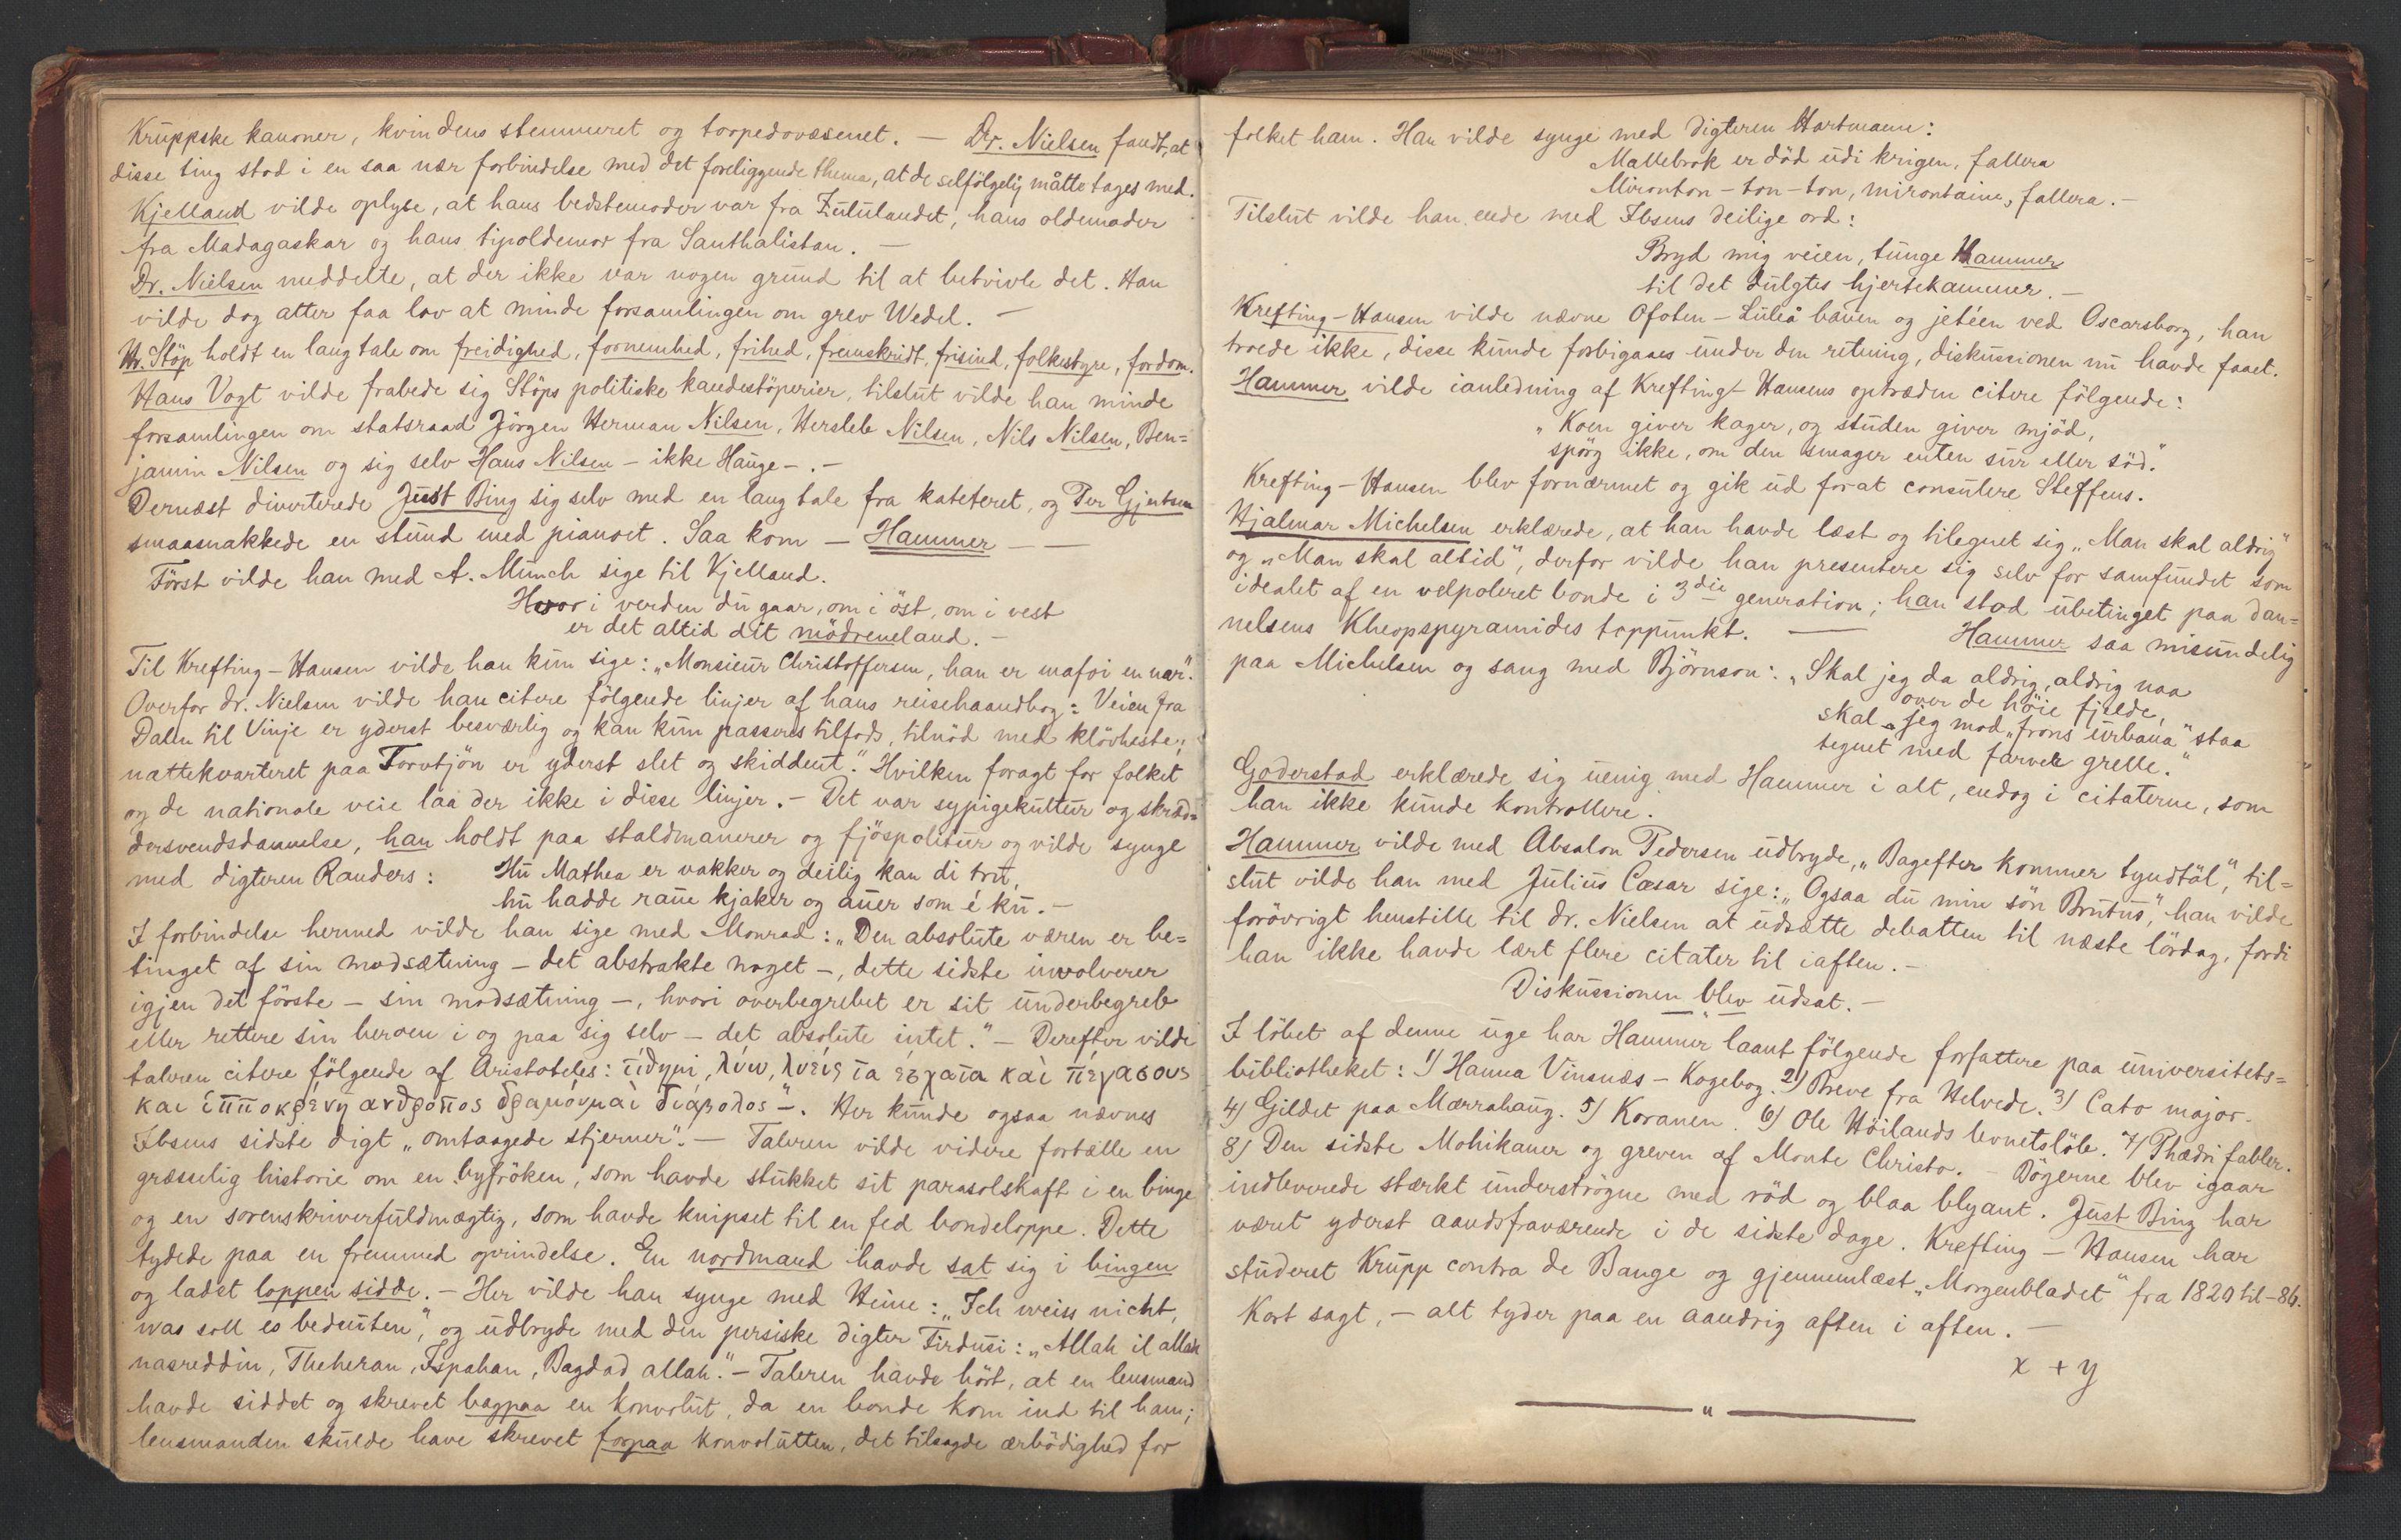 Kruppske kanoner, kvindens stemmeret og torpedovæsenet. — Dr. Nielsen fandt, at
disse ting stod i en saa nær forbindelse med det foreliggende thema, at de selfölgelig måtte tages med.
Kjelland vilde oplyse, at hans bedstemoder var fra Zululandet, hans oldemoder
fra Madagaskar og hans tipoldemor fra Santhalistan. —
Dr. Nielsen meddelte, at der ikke var nogen grund til at betvivle det. Han
vilde dog atter faa lov at minde forsamlingen om grev Wedel. —
Hr. Stöp holdt en lang tale om freidighed, fornemhed, frihed, fremskridt, frisind, folkestyre, fordom.
Hans Vogt vilde frabede sig Stöps politiske kandestöperier, tilslut vilde han minde
forsamlingen om statsraad Jörgen Herman Nilsen, Hersleb Nilsen, Nils Nilsen, Ben=
jamin Nilsen og sig selv Hans Nilsen — ikke Hauge — . —
Dernæst diverterede Just Bing sig selv med en lang tale fra kateteret, og Per Gjertsen
smaasnakkede en stund med pianoet. Saa kom — Hammer — —
Först vilde han med A. Munch sige til Kjelland.
Hvor i verden du gaar, om i öst, om i vest
er det altid dit mödreneland. —
Til Krefting-Hansen vilde han kun sige: „Monsieur Christoffersen, han er mafoi en nar".
Overfor dr. Nielsen vilde han citere fölgende linjer af hans reisehaandbog: Veien fra
Dalen til Vinje er yderst besværlig og kan kun passeres tilfods, tilnöd med klövheste;
nattekvarteret paa Torvtjön er yderst slet og skiddent." Hvilken foragt for folket
og de nationale veie laa der ikke i disse linjer. — Det var sypigekultur og skræd=
dersvendsdannelse, han holdt paa staldmanerer og fjöspolitur og vilde synge
med digteren Randers: Hu Mathea er vakker og deilig kan di tru,
hu hadde raue kjaker og auer som é ku. —
I forbindelse hermed vilde han sige med Monrad: „Den absolute væren er be=
tinget af sin modsætning — det abstrakte noget —, dette sidste involverer
igjen det förste — sin modsætning —, hvori overbegrebet er sit underbegreb
eller rettere sin heroen i og paa sig selv — det absolute intet." — Derefter vilde
taleren citere fölgende af Aristoteles: τίθημι, λύω, λυεις τα έσχατα και πέγασους
και ίπποκρένη ανθροπος δραμόυμαι διάβολος". Her kunde ogsaa nævnes
Ibsens sidste digt „omtaagede stjerner". — Taleren vilde videre fortælle en
græsselig historie om en byfröken, som havde stukket sit parasolskaft i en binge
og en sorenskriverfuldmægtig, som havde knipset til en fed bondeloppe. Dette
tydede paa en fremmed oprindelse. En nordmand havde sat sig i bingen
og ladet loppen sidde. — Her vilde han synge med Heine: „Ich weiss nicht,
was soll es bedeuten", og udbryde med den persiske digter Firdusi: „Allah il allah
nasreddin, Theheran, Ispahan, Bagdad allah." — Taleren havde hört, at en lensmand
havde siddet og skrevet bagpaa en konvolut, da en bonde kom ind til ham;
lensmanden skulde have skrevet forpaa konvolutten, det tilsagde ærbödighed for
folket ham. Han vilde synge med digteren Hartmann:
Mallebrok er död udi krigen, fallera
Mironton-ton-ton, mirontaine, fallera. —
Tilslut vilde han ende med Ibsens deilige ord:
Bryd mig veien, tunge Hammer
til det dulgtes hjertekammer. —
Krefting-Hansen vilde nævne Ofoten-Luleå banen og jetéen ved Oscarsborg, han
troede ikke, disse kunde forbigaaes under den retning, diskussionen nu havde faaet.
Hammer vilde ianledning af Krefting-Hansens optræden citere fölgende:
„Koen giver kager, og studen giver mjöd,
spörg ikke, om den smager enten sur eller söd."
Krefting-Hansen blev fornærmet og gik ud forat consulere Steffens.
Hjalmar Michelsen erklærede, at han havde læst og tilegnet sig „Man skal aldrig"
og „Man skal altid", derfor vilde han presentere sig selv for samfundet som
idealet af en velpoleret bonde i 3die generation; han stod ubetinget paa dan=
nelsens Kheopspyramides toppunkt. — Hammer saa misundelig
paa Michelsen og sang med Björnson: „Skal jeg da aldrig, aldrig naa
over de höie fjelde,
skal jeg mod „frons urbana" staa
tegnet med farver grelle."
Goderstad erklærede sig uenig med Hammer i alt, endog i citaterne, som
han ikke kunde kontrollere.
Hammer vilde med Absalon Pedersen udbryde, „Bagefter kommer tyndtöl", til=
slut vilde han med Julius Cæsar sige: „Ogsaa du min sön Brutus", han vilde
forövrigt henstille til dr. Nielsen at udsætte debatten til næste lördag, fordi
han ikke havde lært flere citater til iaften. —
Diskussionen blev udsat. —
I löbet af denne uge har Hammer laant fölgende forfattere paa universitets=
bibliotheket: 1) Hanna Vinsnæs — Kogebog. 2) Breve fra Helvede. 3) Cato major.
4) Gildet paa Mærrahaug. 5) Koranen. 6) Ole Höilands levnetslöb. 7) Phædri fabler.
8) Den sidste Mohikaner og greven af Monte Christo. — Bögerne blev igaar
indleverede stærkt underströgne med röd og blaa blyant. Just Bing har
været yderst aandsfraværende i de sidste dage. Krefting-Hansen har
studeret Krupp contra de Bange og gjennemlæst „Morgenbladet" fra 1820 til -86.
Kort sagt, — alt tyder paa en aandrig aften i aften. —
x + y
— " —